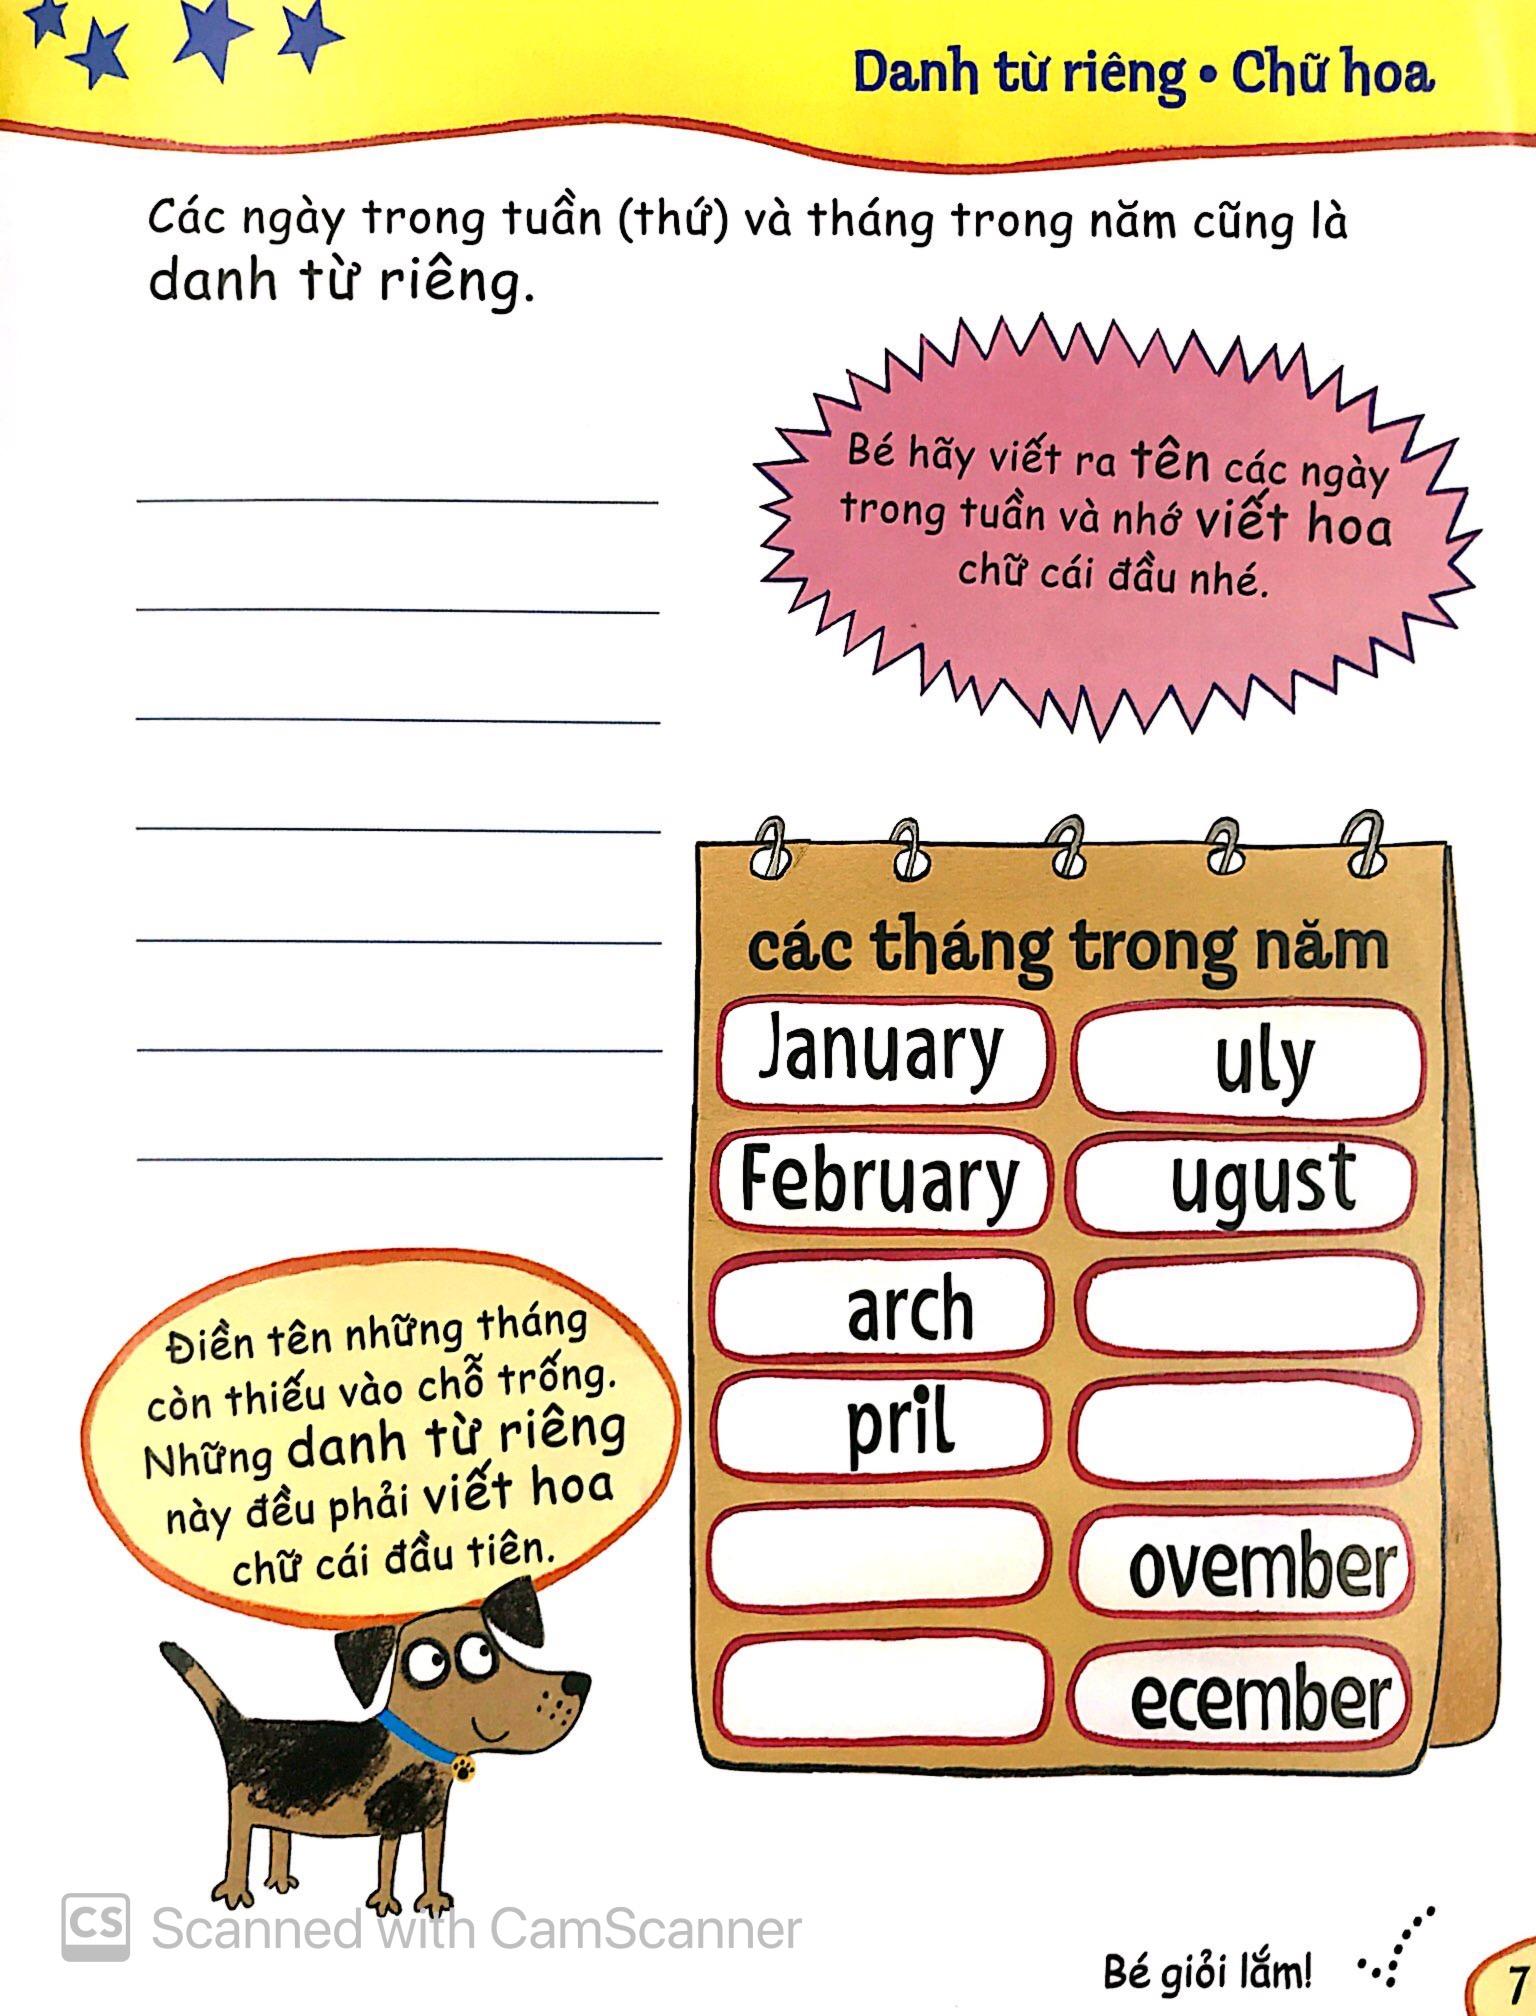 Danh từ riêng • Chữ hoa
Các ngày trong tuần (thứ) và tháng trong năm cũng là
danh từ riêng.
Bé hãy viết ra tên các ngày
trong tuần và nhớ viết hoa
chữ cái đầu nhé.
các tháng trong năm
January
uly
February
ugust
arch
pril
ovember
ecember
Điền tên những tháng
còn thiếu vào chỗ trống.
Những danh từ riêng
này đều phải viết hoa
chữ cái đầu tiên.
CS Scanned with CamScanner
Bé giỏi lắm!
7